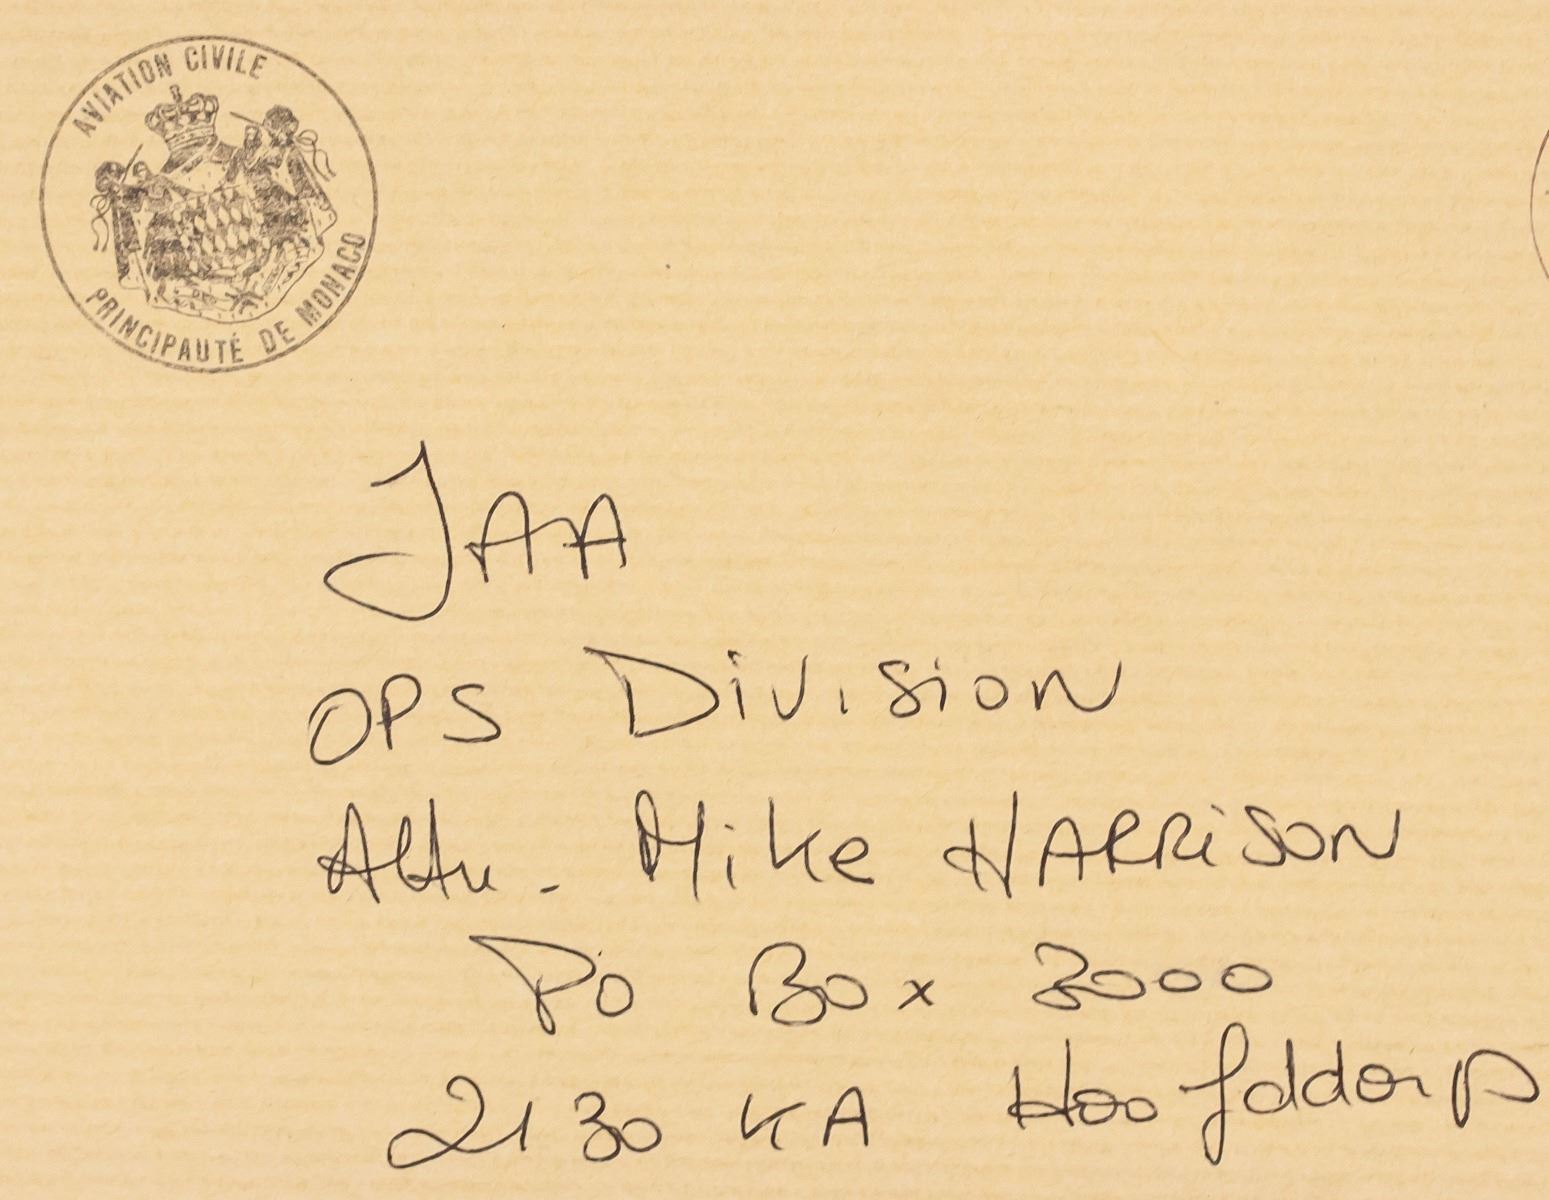 AVIATION CIVILE
PRINCIPAUTÉ DE MONACO
JAA
OPS DiViSiON
Attn. Mike HARRiSON
PO BOx 3000
2130 KA Hoofddorp